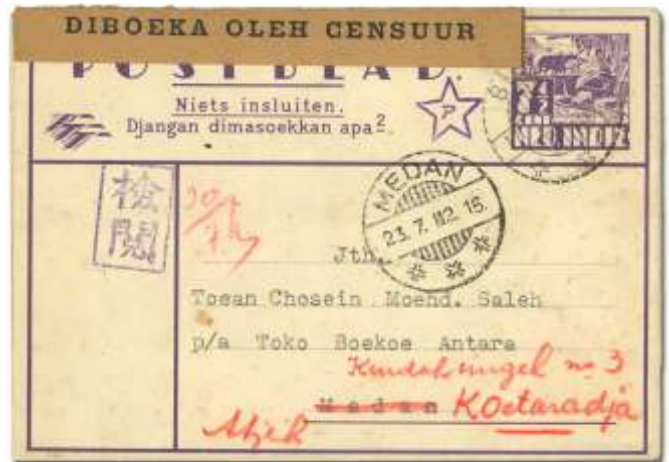 DIBOEKA OLEH CENSUUR
POSTBLAD.
Niets insluiten.
Djangan dimasoekkan apa2
P
NED INDIE
檢閱
MEDAN
23.7.
Jth.
Toean Chosein Moehd. Saleh
p/a Toko Boekoe Antara
no 3
Medan KOetaradja
Atjeh